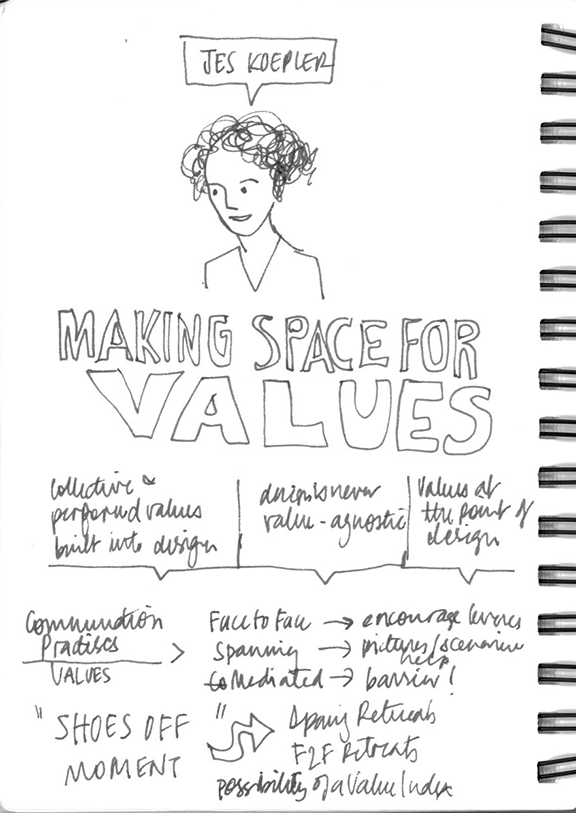 JES KOEPLER
MAKING SPACE FOR
VALUES
collective &
performed values
built into design
design is never
value-agnostic
values at
the point of
design
Communication
Practises
VALUES
>
Face to Face → encourage
Spanning → pictures/scenarios
help
Mediated → barrier!
"SHOES OFF
MOMENT"
Retreats
F2F Retreats
possibility of a Value Index